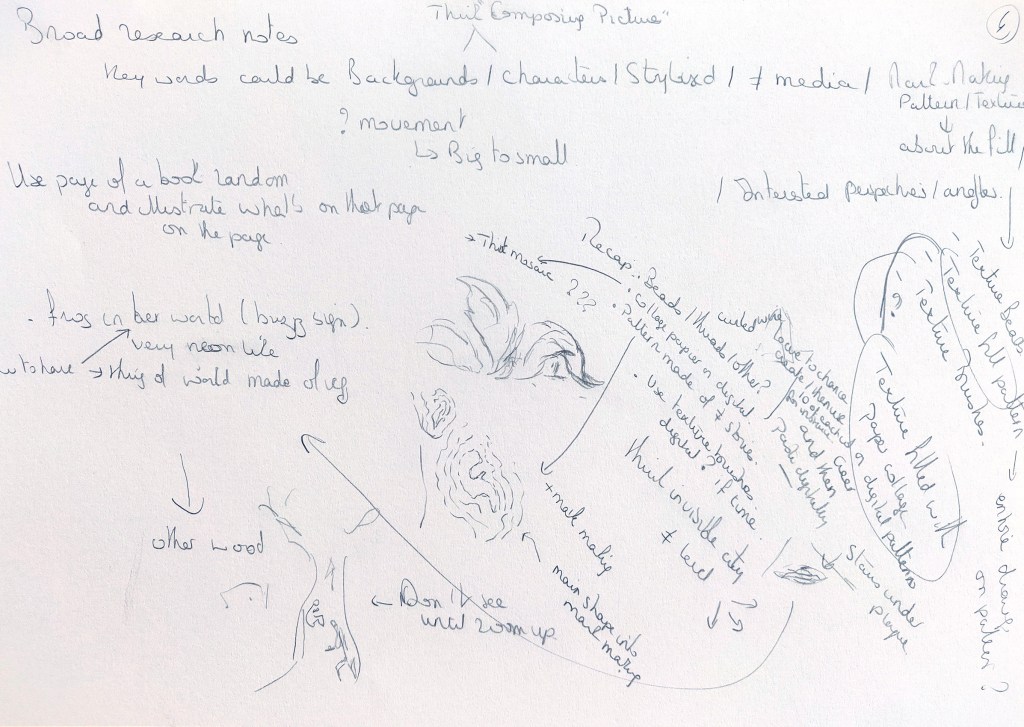 Think "Composing Picture"
Broad research notes
Key words could be Backgrounds / characters / Stylized / ≠ media / Mark-Making
Pattern / Texture
about the fill /
? movement
↳ Big to small
/ Interested perspectives / angles.
Use page of a book random
and illustrate what's on that page
on the page.
→ Think mosaic ???
Recap..
Beads / threads / other?
• collage paper or digital.
• Pattern made of ≠ stories.
• Use texture brushes
digital? If time.
think invisible city
≠ level
and then
digitally
Stairs under
- Texture Beads
- Texture fill pattern
- Texture Brushes.
- ?
Texture filled with
paper collage
or digital patterns
→ entire drawing
on pattern?
. frog in her world (buzz sign).
very neon like
→ thing of world made of
+ mark making
main shape into
mark making
other wood
← Don't see
until zoom up.